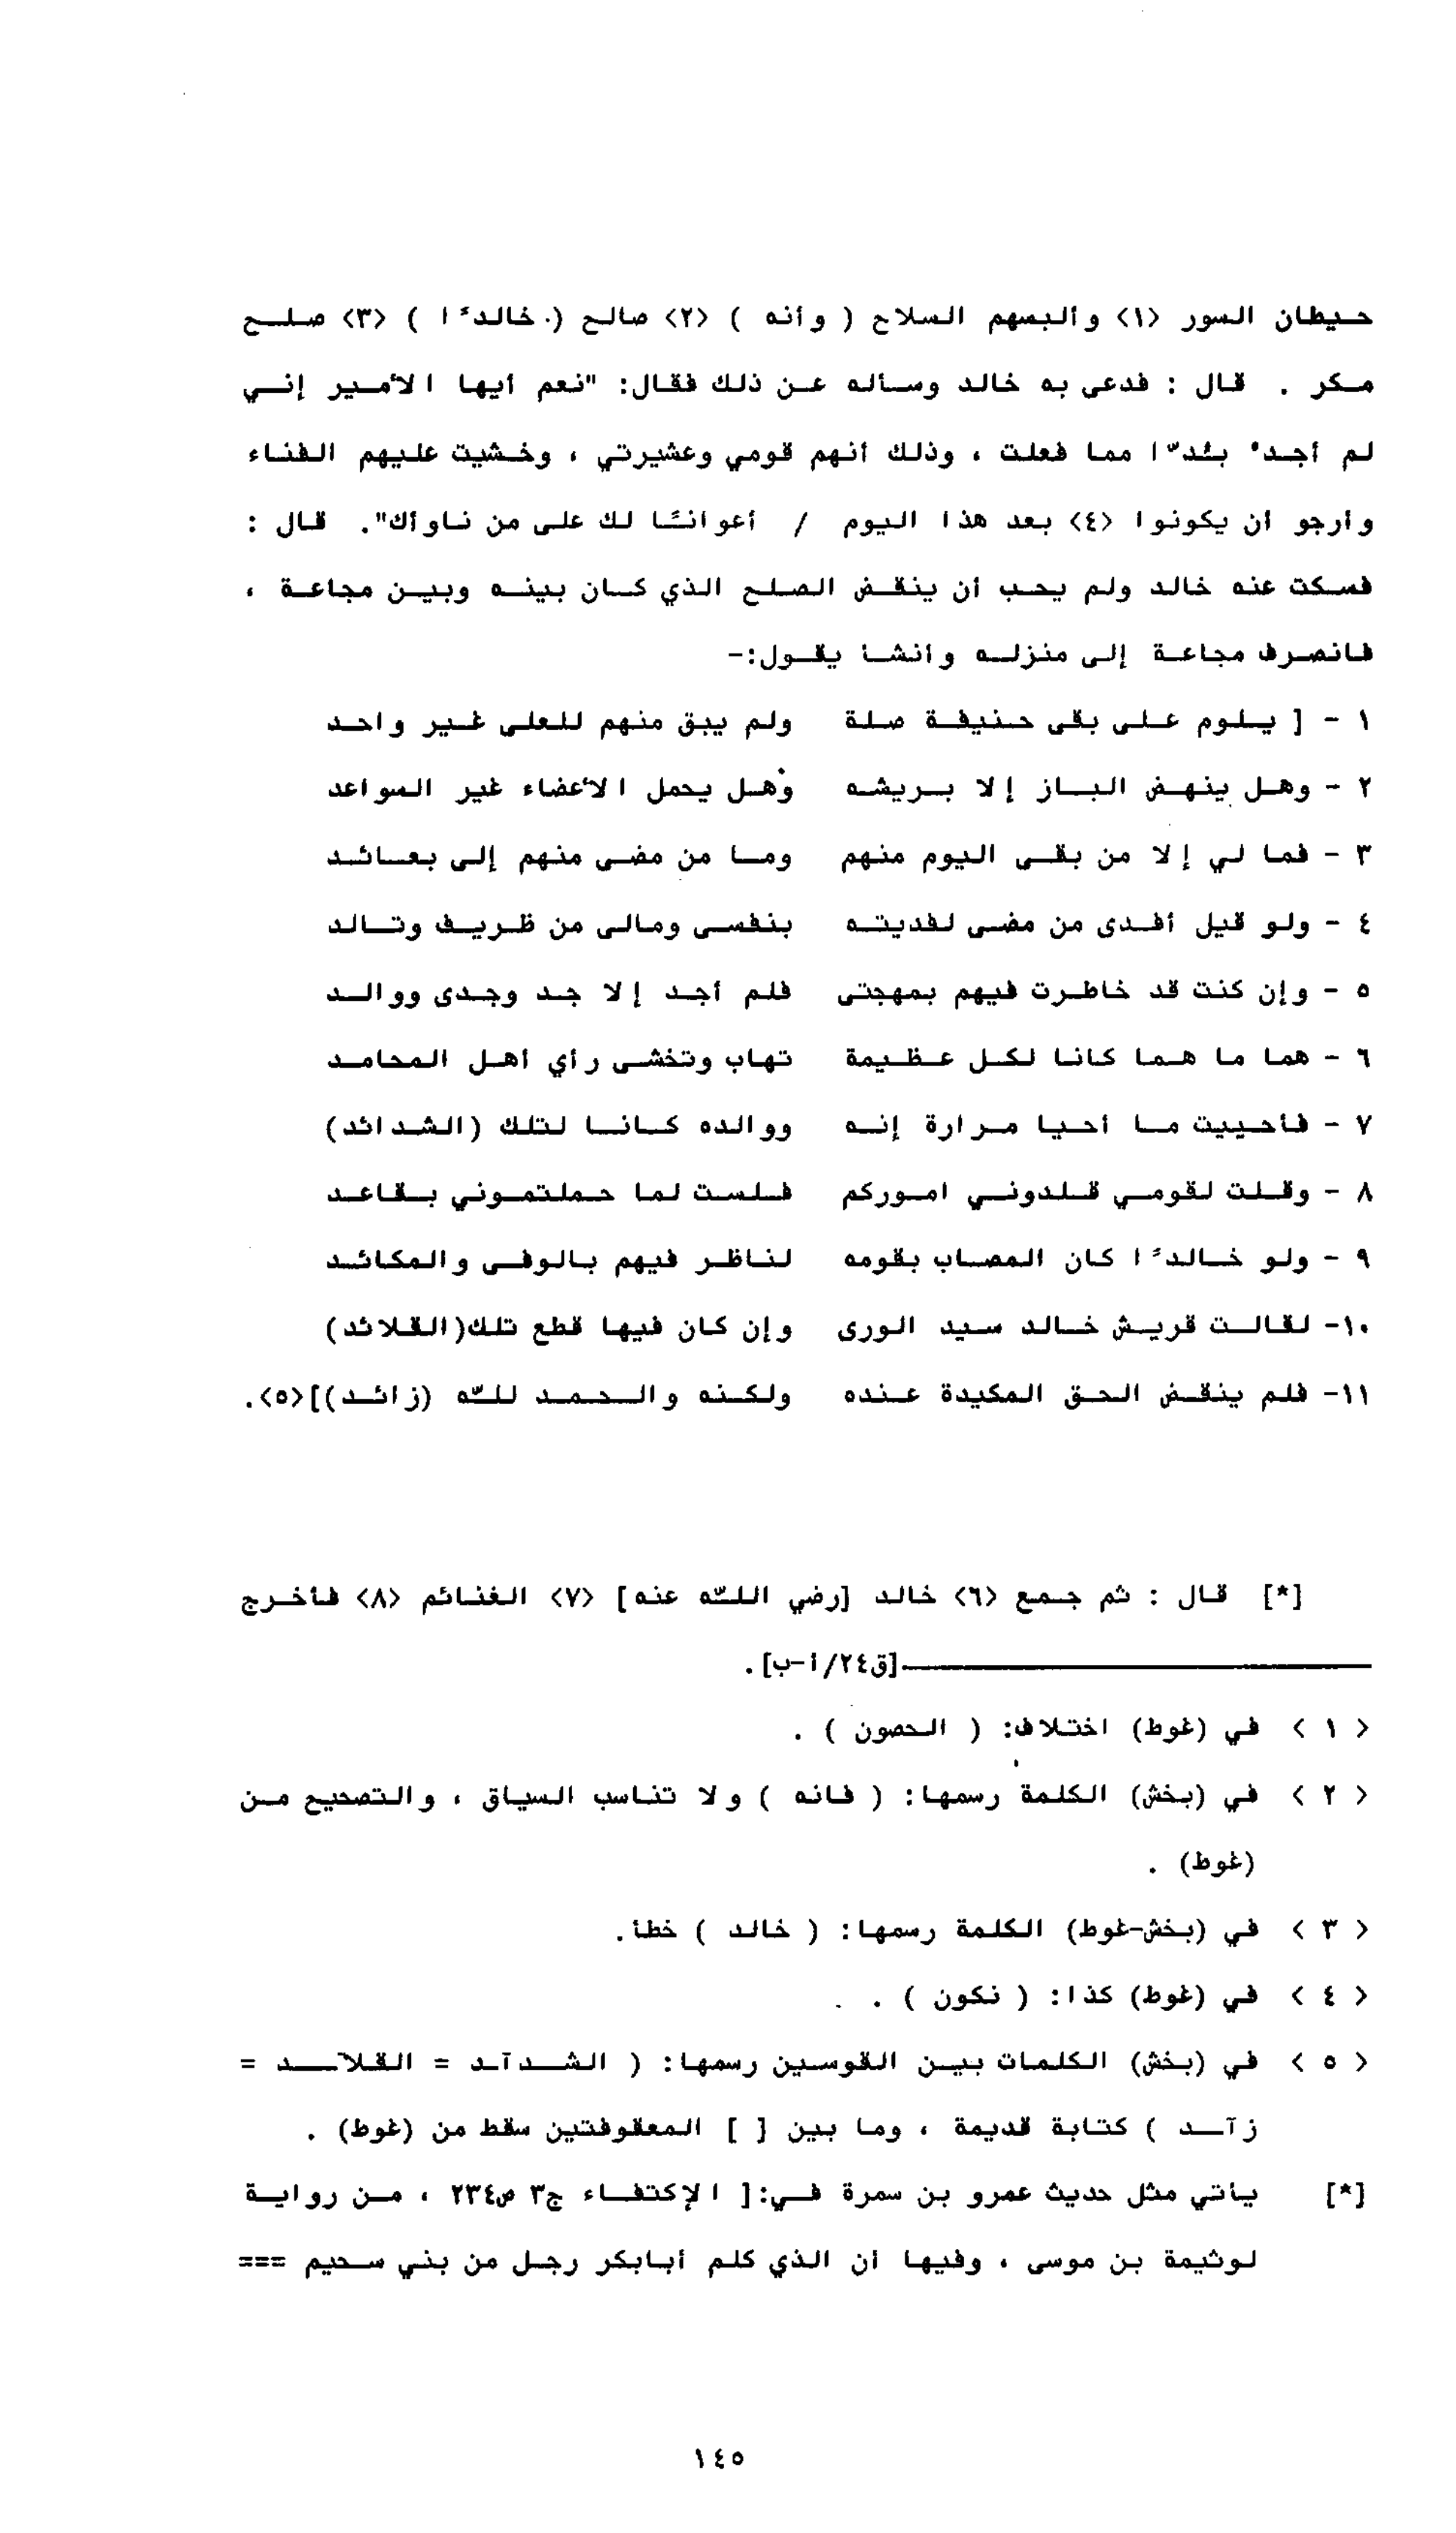 حيطان السور <١> وألبسهم السلاح ( وأنه ) <٢> صالح ( خالدًا ) <٣> صلح
مكر . قال : فدعى به خالد وسأله عن ذلك فقال: "نعم أيها الأمير إني
لم أجدْ بُدًّا مما فعلت ، وذلك أنهم قومي وعشيرتي ، وخشيت عليهم الفناء
وأرجو أن يكونوا <٤> بعد هذا اليوم / أعوانًا لك على من ناوأك". قال :
فسكت عنه خالد ولم يحب أن ينقض الصلح الذي كان بينه وبين مجاعة ،
فانصرف مجاعة إلى منزله وأنشأ يقول:-
١ - [ يلوم على بقى حنيفة صلة ولم يبق منهم للعلى غير واحد
٢ - وهل ينهض الباز إلا بريشه وهل يحمل الأعضاء غير السواعد
٣ - فما لي إلا من بقى اليوم منهم وما من مضى منهم إلى بعائد
٤ - ولو قيل أفدى من مضى لفديته بنفسى ومالى من ظريف وتالد
٥ - وإن كنت قد خاطرت فيهم بمهجتى فلم أجد إلا جد وجدى ووالد
٦ - هما ما هما كانا لكل عظيمة تهاب وتخشى رأي أهل المحامد
٧ - فأحييت ما أحيا مرارة إنه ووالده كانا لتلك (الشدائد)
٨ - وقلت لقومي قلدوني اموركم فلست لما حملتموني بقاعد
٩ - ولو خالدًا كان المصاب بقومه لناظر فيهم بالوفى والمكائد
١٠- لقالت قريش خالد سيد الورى وإن كان فيها قطع تلك(القلائد)
١١- فلم ينقض الحق المكيدة عنده ولكنه والحمد للّه (زائد)]<٥>.
[*] قال : ثم جمع <٦> خالد [رضي اللّه عنه] <٧> الغنائم <٨> فأخرج
[ق٢٤/أ-ب] .
< ١ > في (غوط) اختلاف: ( الحصون ) .
< ٢ > في (بخش) الكلمة رسمها: ( فانه ) ولا تناسب السياق ، والتصحيح من
(غوط) .
< ٣ > في (بخش-غوط) الكلمة رسمها: ( خالد ) خطأ.
< ٤ > في (غوط) كذا: ( نكون ) .
< ٥ > في (بخش) الكلمات بين القوسين رسمها: ( الشدآد = القلآد =
زآد ) كتابة قديمة ، وما بين [ ] المعقوفتين سقط من (غوط) .
[*] يأتي مثل حديث عمرو بن سمرة في:[ الإكتفاء ج٣ ص٢٣٤ ، من رواية
لوثيمة بن موسى ، وفيها أن الذي كلم أبابكر رجل من بني سحيم ===
١٤٥